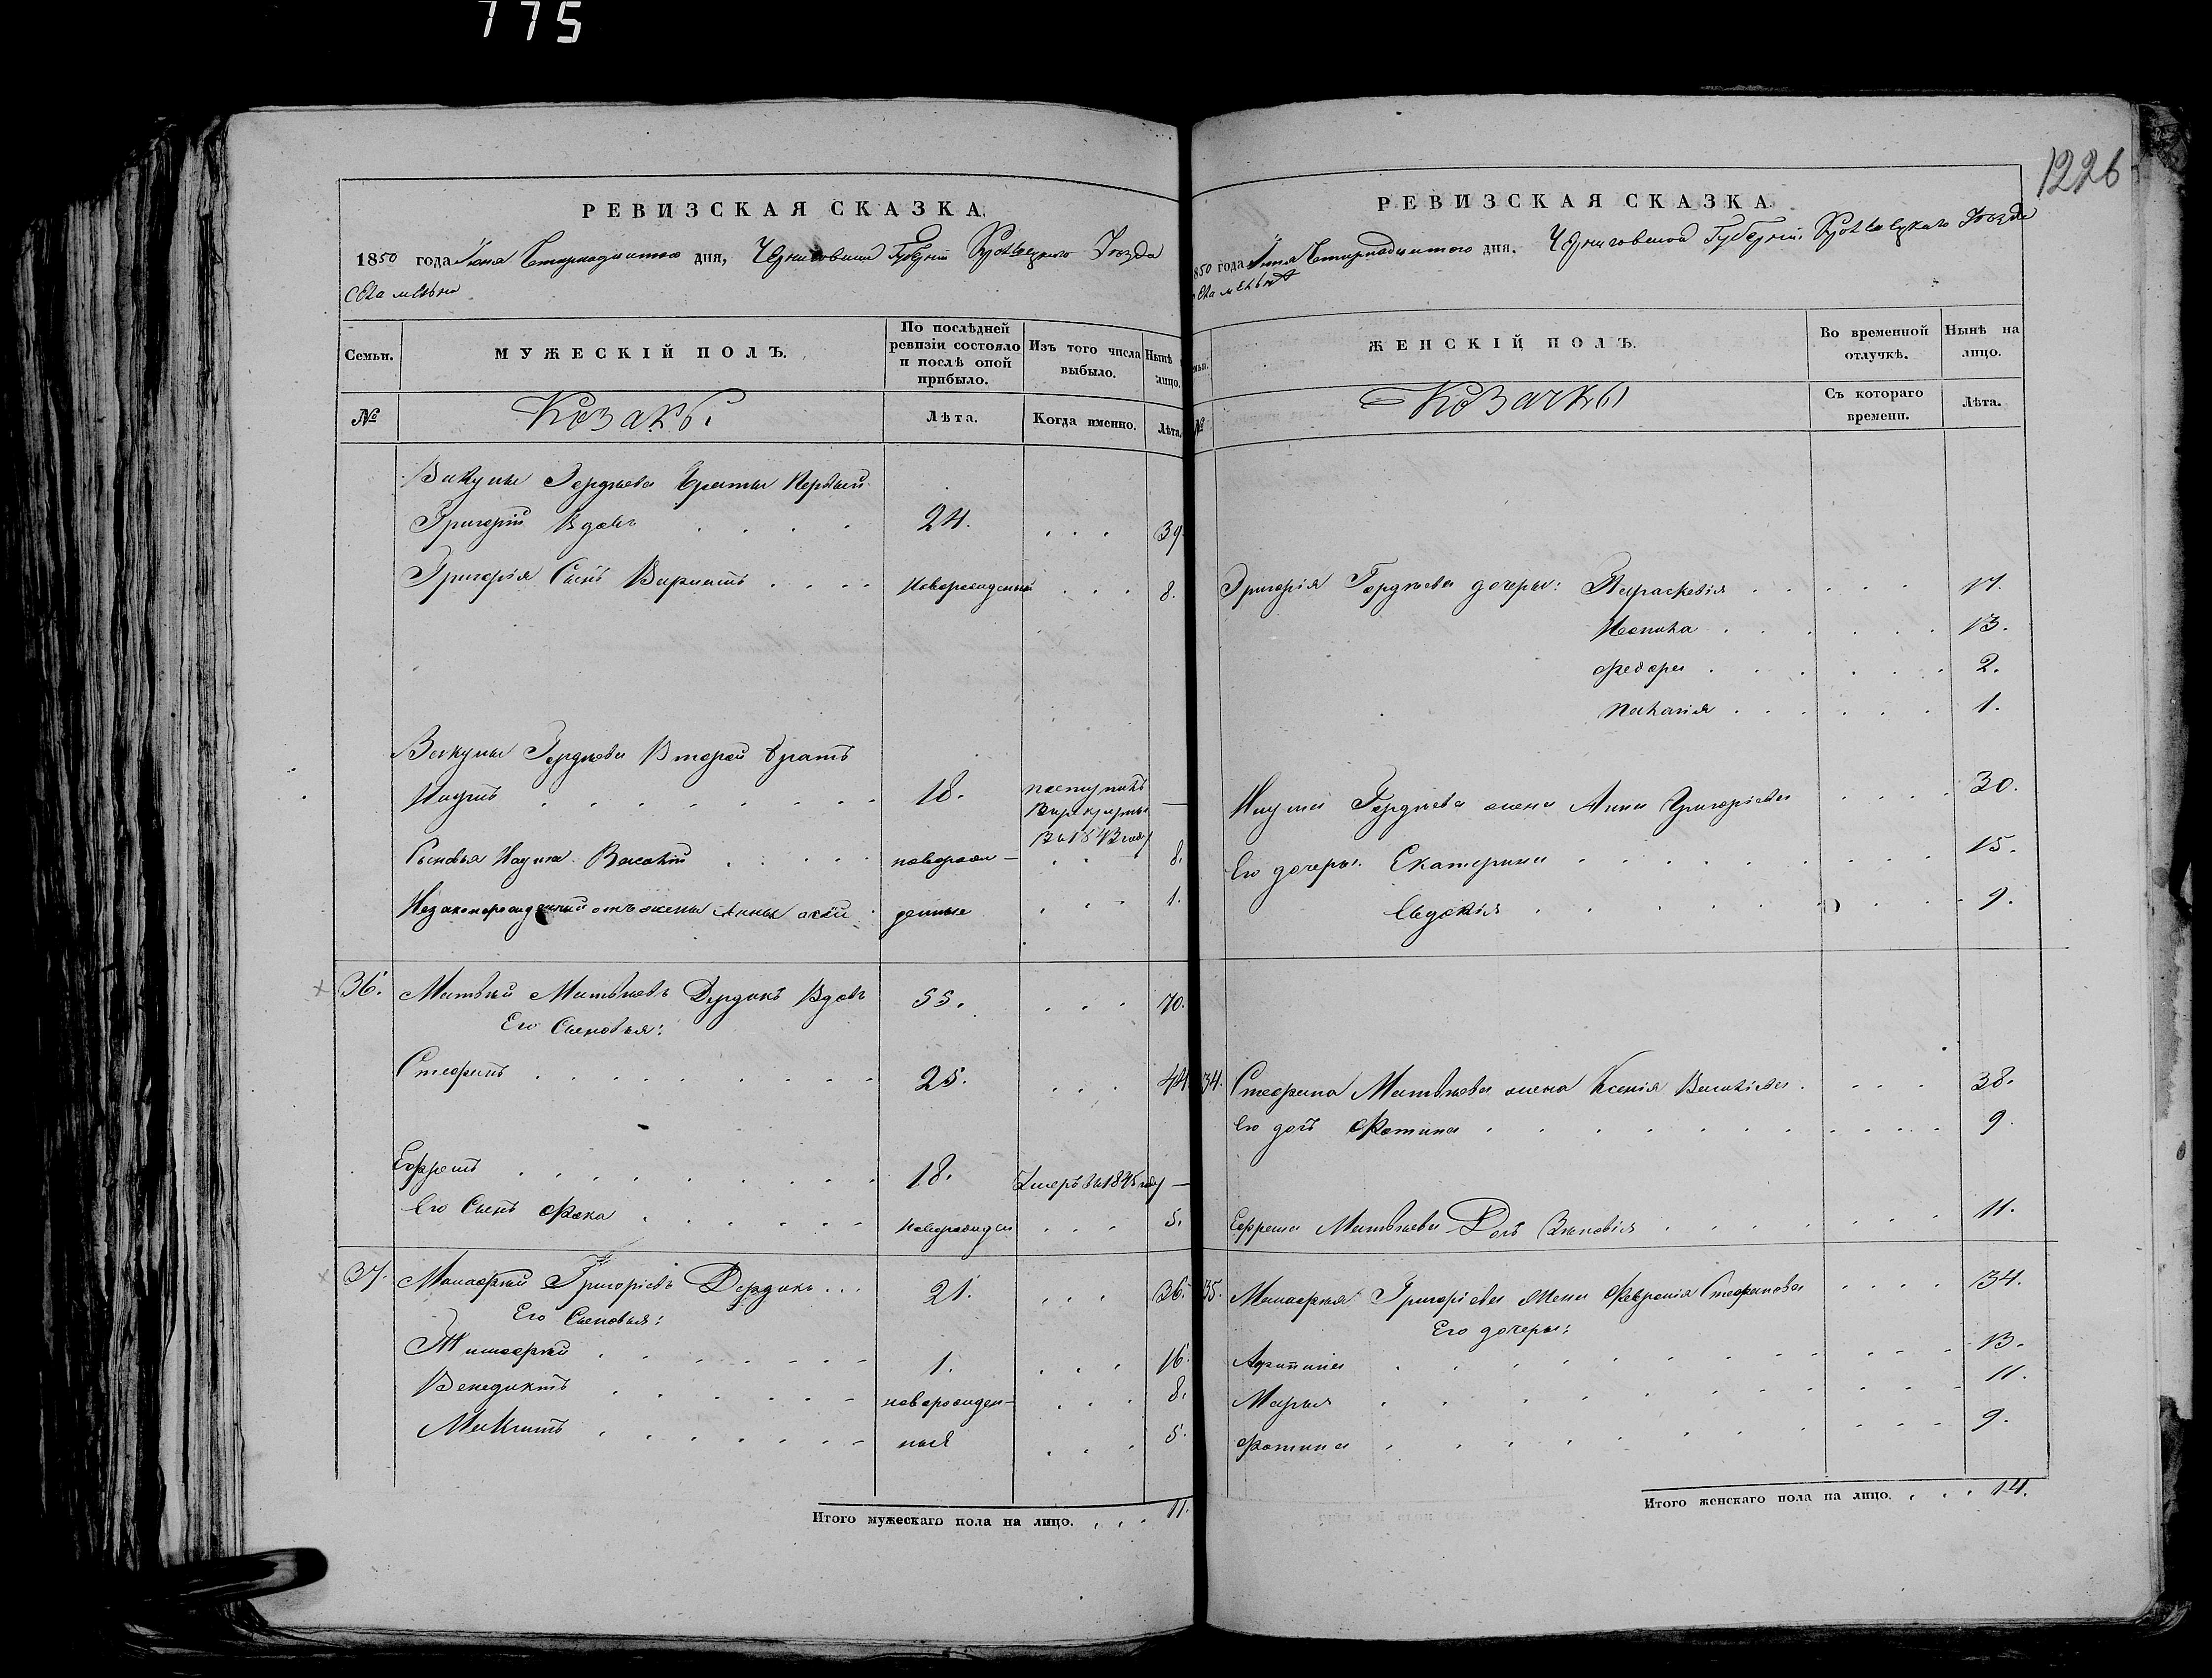 775
1226
РЕВИЗСКАЯ СКАЗКА.
1850 года Іюня Четырнадцатого дня, Черниговской Губерніи Кролевецкаго Уѣзда
Села
Семьи.
МУЖЕСКІЙ ПОЛЪ.
По послѣдней ревизіи состояло и послѣ оной прибыло.
Изъ того числа выбыло.
Нынѣ на лицо.
№
Козаки.
Лѣта.
Когда именно.
Лѣта.
Викулы Гордѣева братья Первый
Григорій Вдовъ 24. 39.
Григорія Сынъ новорожденный 8.
Викулы Гордѣева Второй братъ
Наумъ 18. поступилъ —
В рекруты
Въ 1843 году
Сыновья Наума Василій новорож- 8.
Незаконорожденный отъ жены Анны денные 1.
36. Матвѣй Матвѣевъ Дердакъ Вдовъ 55. 70.
Его Сыновья:
Стефанъ 25.
Ефремъ 18. Умеръ въ 1845 году —
Его Сынъ Фока новорожден 5.
37. Манасфей Григоріевъ Дердакъ 21. 36.
Его Сыновья:
Тимофей 1. 16.
Венедиктъ новорожден- 8.
ные 5.
Итого мужескаго пола на лицо. 11.
РЕВИЗСКАЯ СКАЗКА.
1850 года Іюня Четырнадцатого дня, Черниговской Губерніи Кролевецкаго Уѣзда
Села
ЖЕНСКІЙ ПОЛЪ.
Во временной отлучкѣ.
Нынѣ на лицо.
№
Козачки
Съ котораго времени.
Лѣта.
Григорія Гордѣева дочеры: Параскевія 17.
13.
Федора 2.
Пелагія 1.
Наума Гордѣева жена Анна Григоріева 30.
Его дочеры: Екатерина 15.
Евдокія 9.
34. Стефана Матвѣева жена Ксенія Василіева 38.
Его дочь Фотина 9.
Ефрема Матвѣева Дочь Зѣновія 11.
35. Манасфея Григоріева жена Февронія Стефанова 34.
Его дочеры:
Агрипина 13.
Марья 11.
Фотина 9.
Итого женскаго пола на лицо. 14.